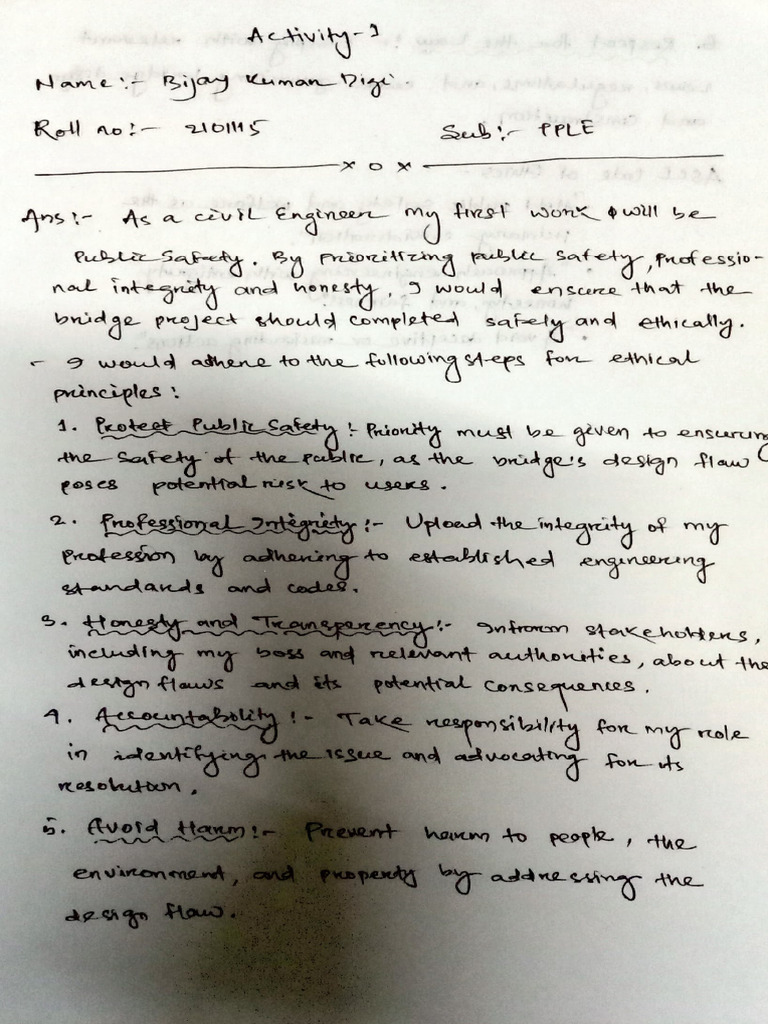 Activity-1
Name:- Bijay Kumar Digi.
Roll no:- 2101115
Sub:- PPLE
x o x
Ans:- As a civil Engineer my first work will be
Public Safety. By Prioritizing public safety, professio-
nal integrity and honesty, I would ensure that the
bridge project should completed safely and ethically.
- I would adhere to the following steps for ethical
principles:
1. Protect Public Safety:- Priority must be given to ensuring
the safety of the public, as the bridge's design flaw
poses potential risk to users.
2. Professional Integriety:- Upload the integrity of my
profession by adhering to established engineering
standards and codes.
3. Honesty and Transperency:- Infrom stakeholders,
including my boss and relevant authorities, about the
design flaws and its potential consequences.
4. Accountability:- Take responsibility for my role
in identifying the issue and advocating for its
resolution.
5. Avoid Harm:- Prevent harm to people, the
environment, and property by addressing the
design flaw.